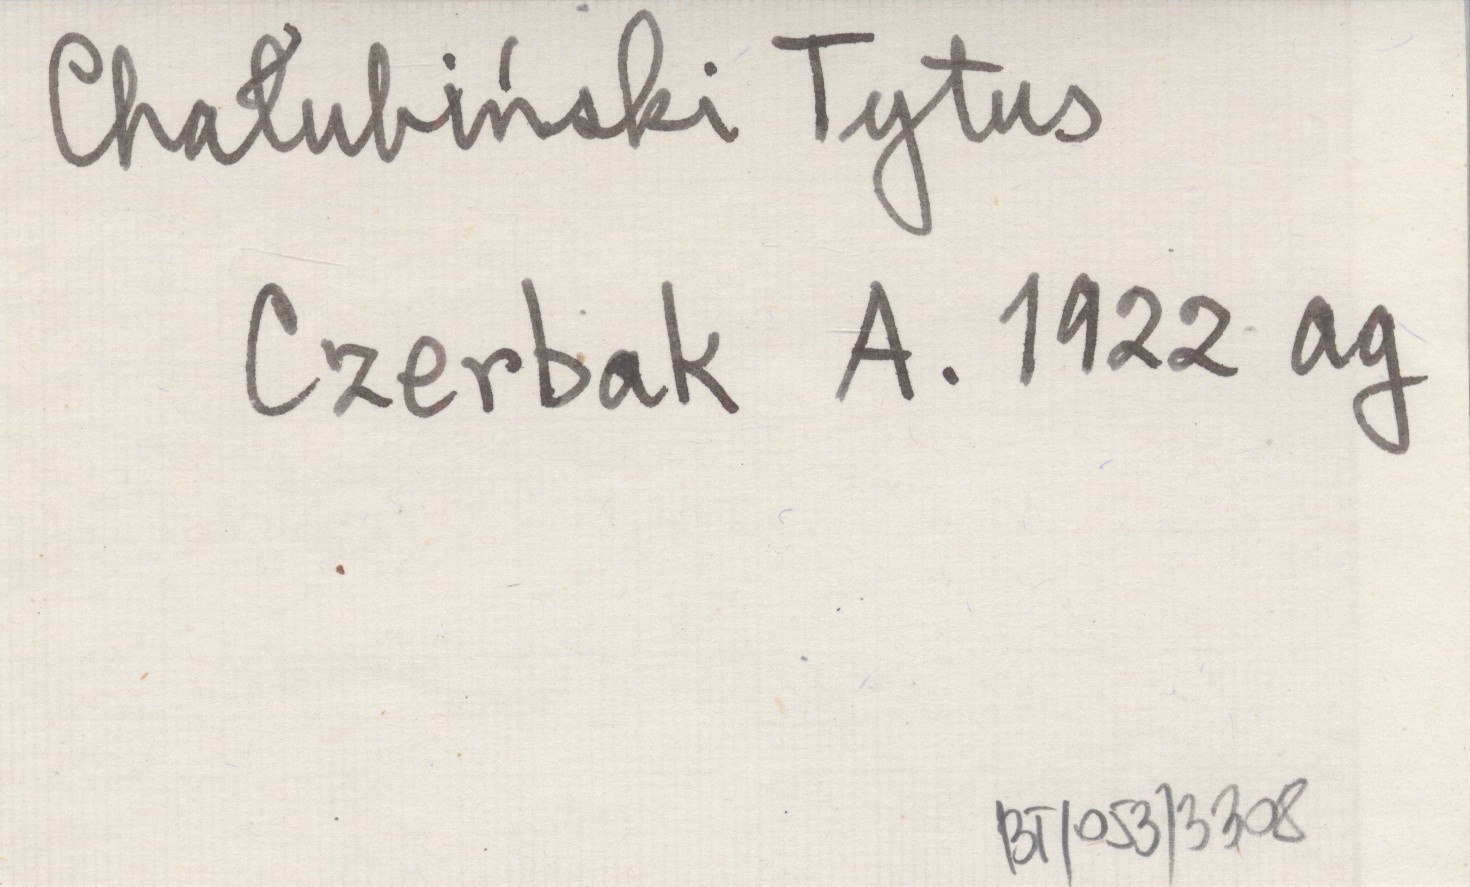 Chałubiński Tytus
Czerbak A. 1922 ag
BT/053/3308